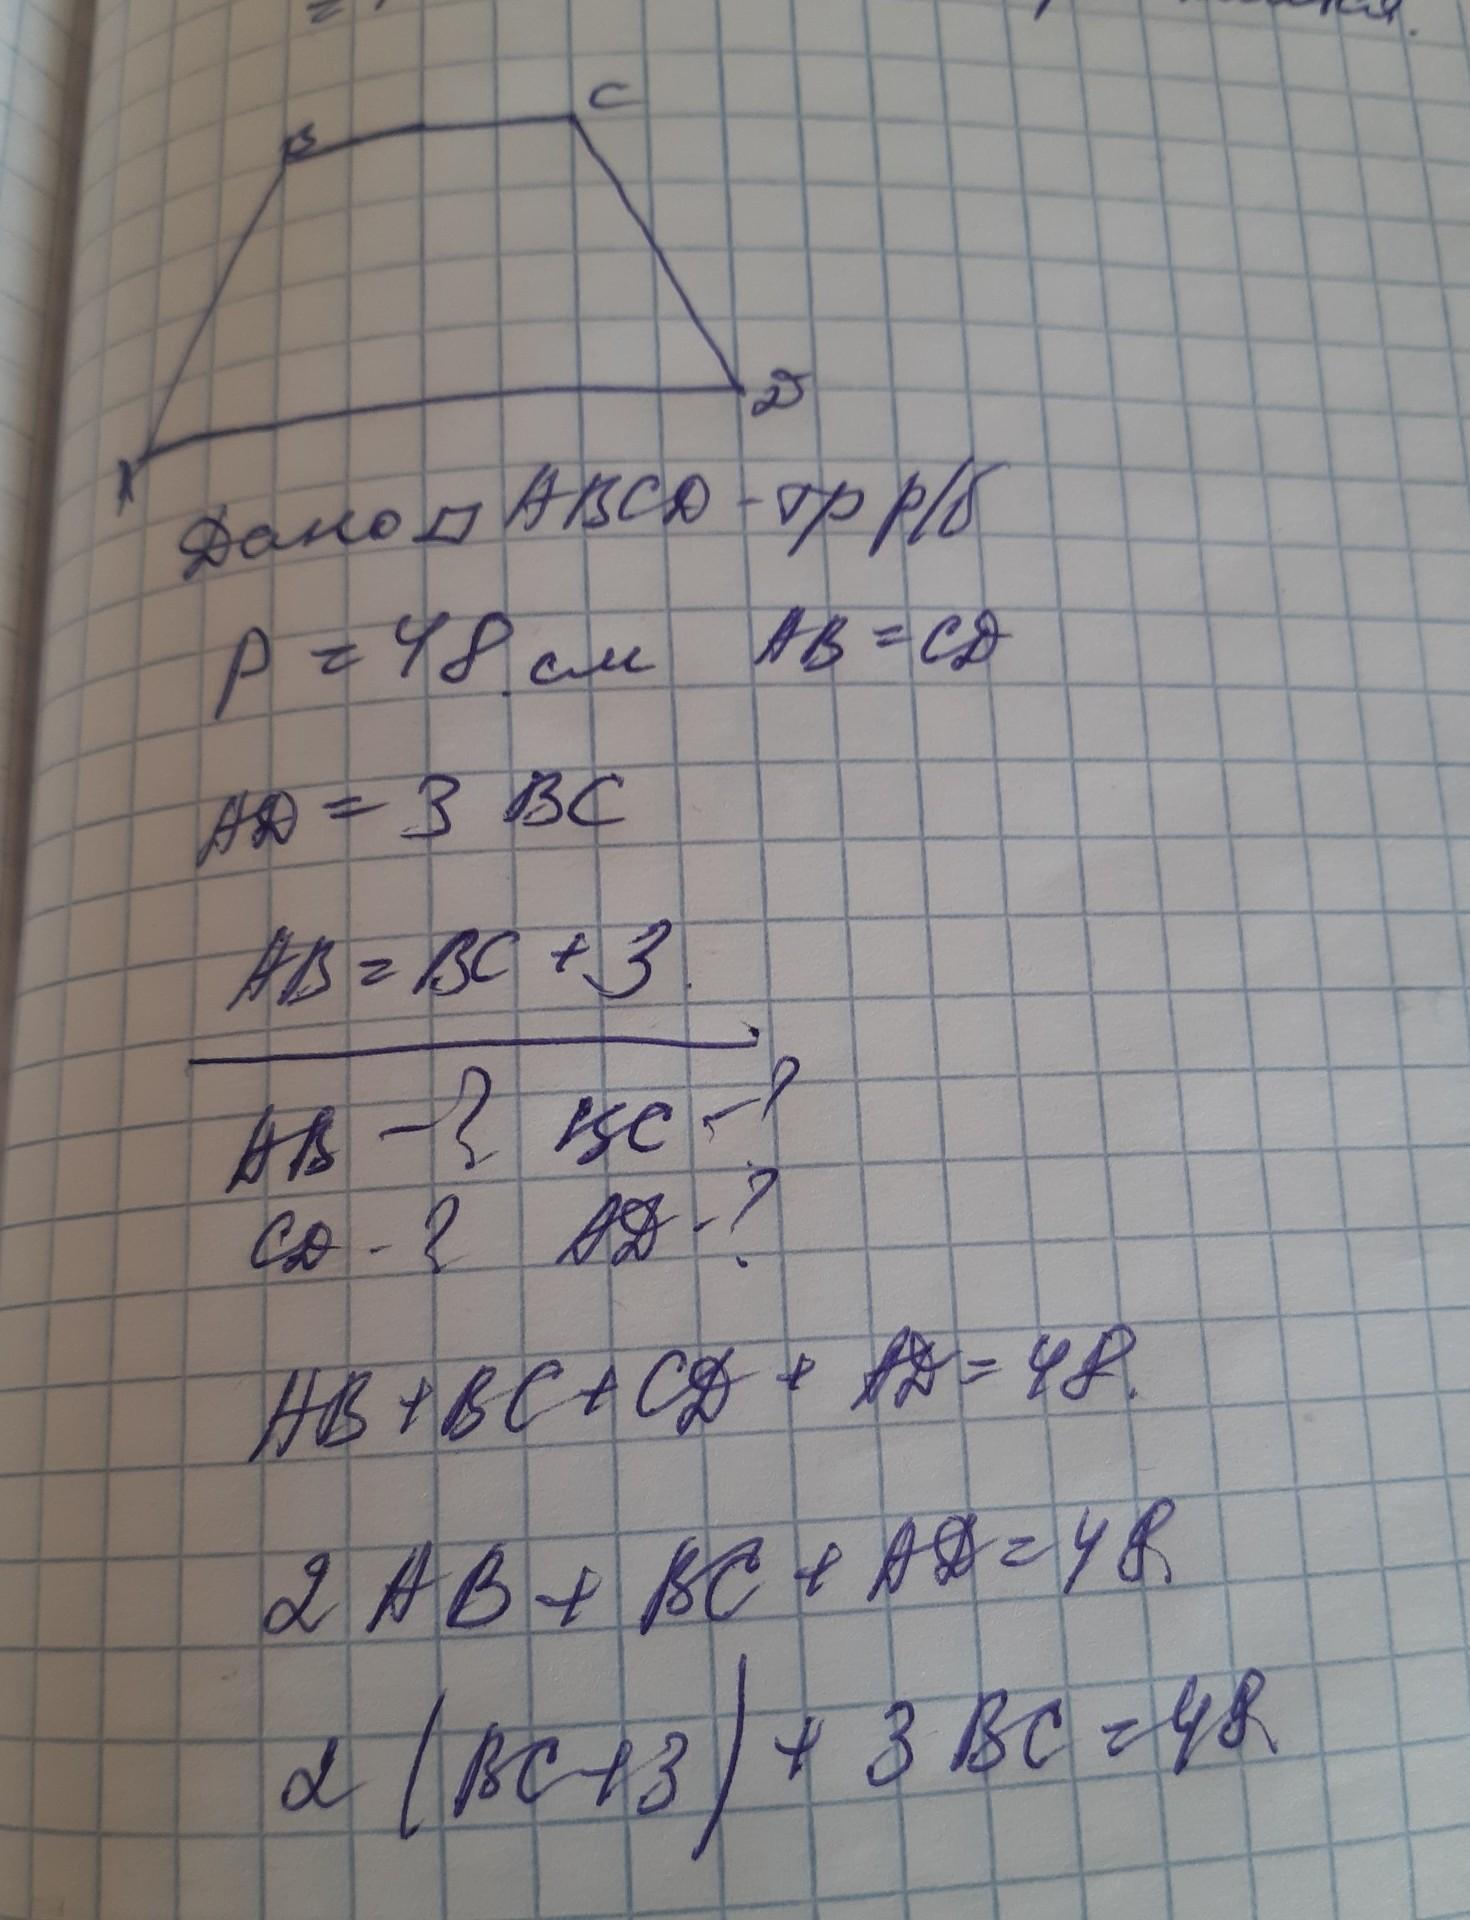 B C
A D
Дано ▱ ABCD - тр р/б
P = 48 см AB = CD
AD = 3 BC
AB = BC + 3
AB - ? BC - ?
CD - ? AD - ?
AB + BC + CD + AD = 48.
2 AB + BC + AD = 48
2 (BC + 3) + 3 BC = 48